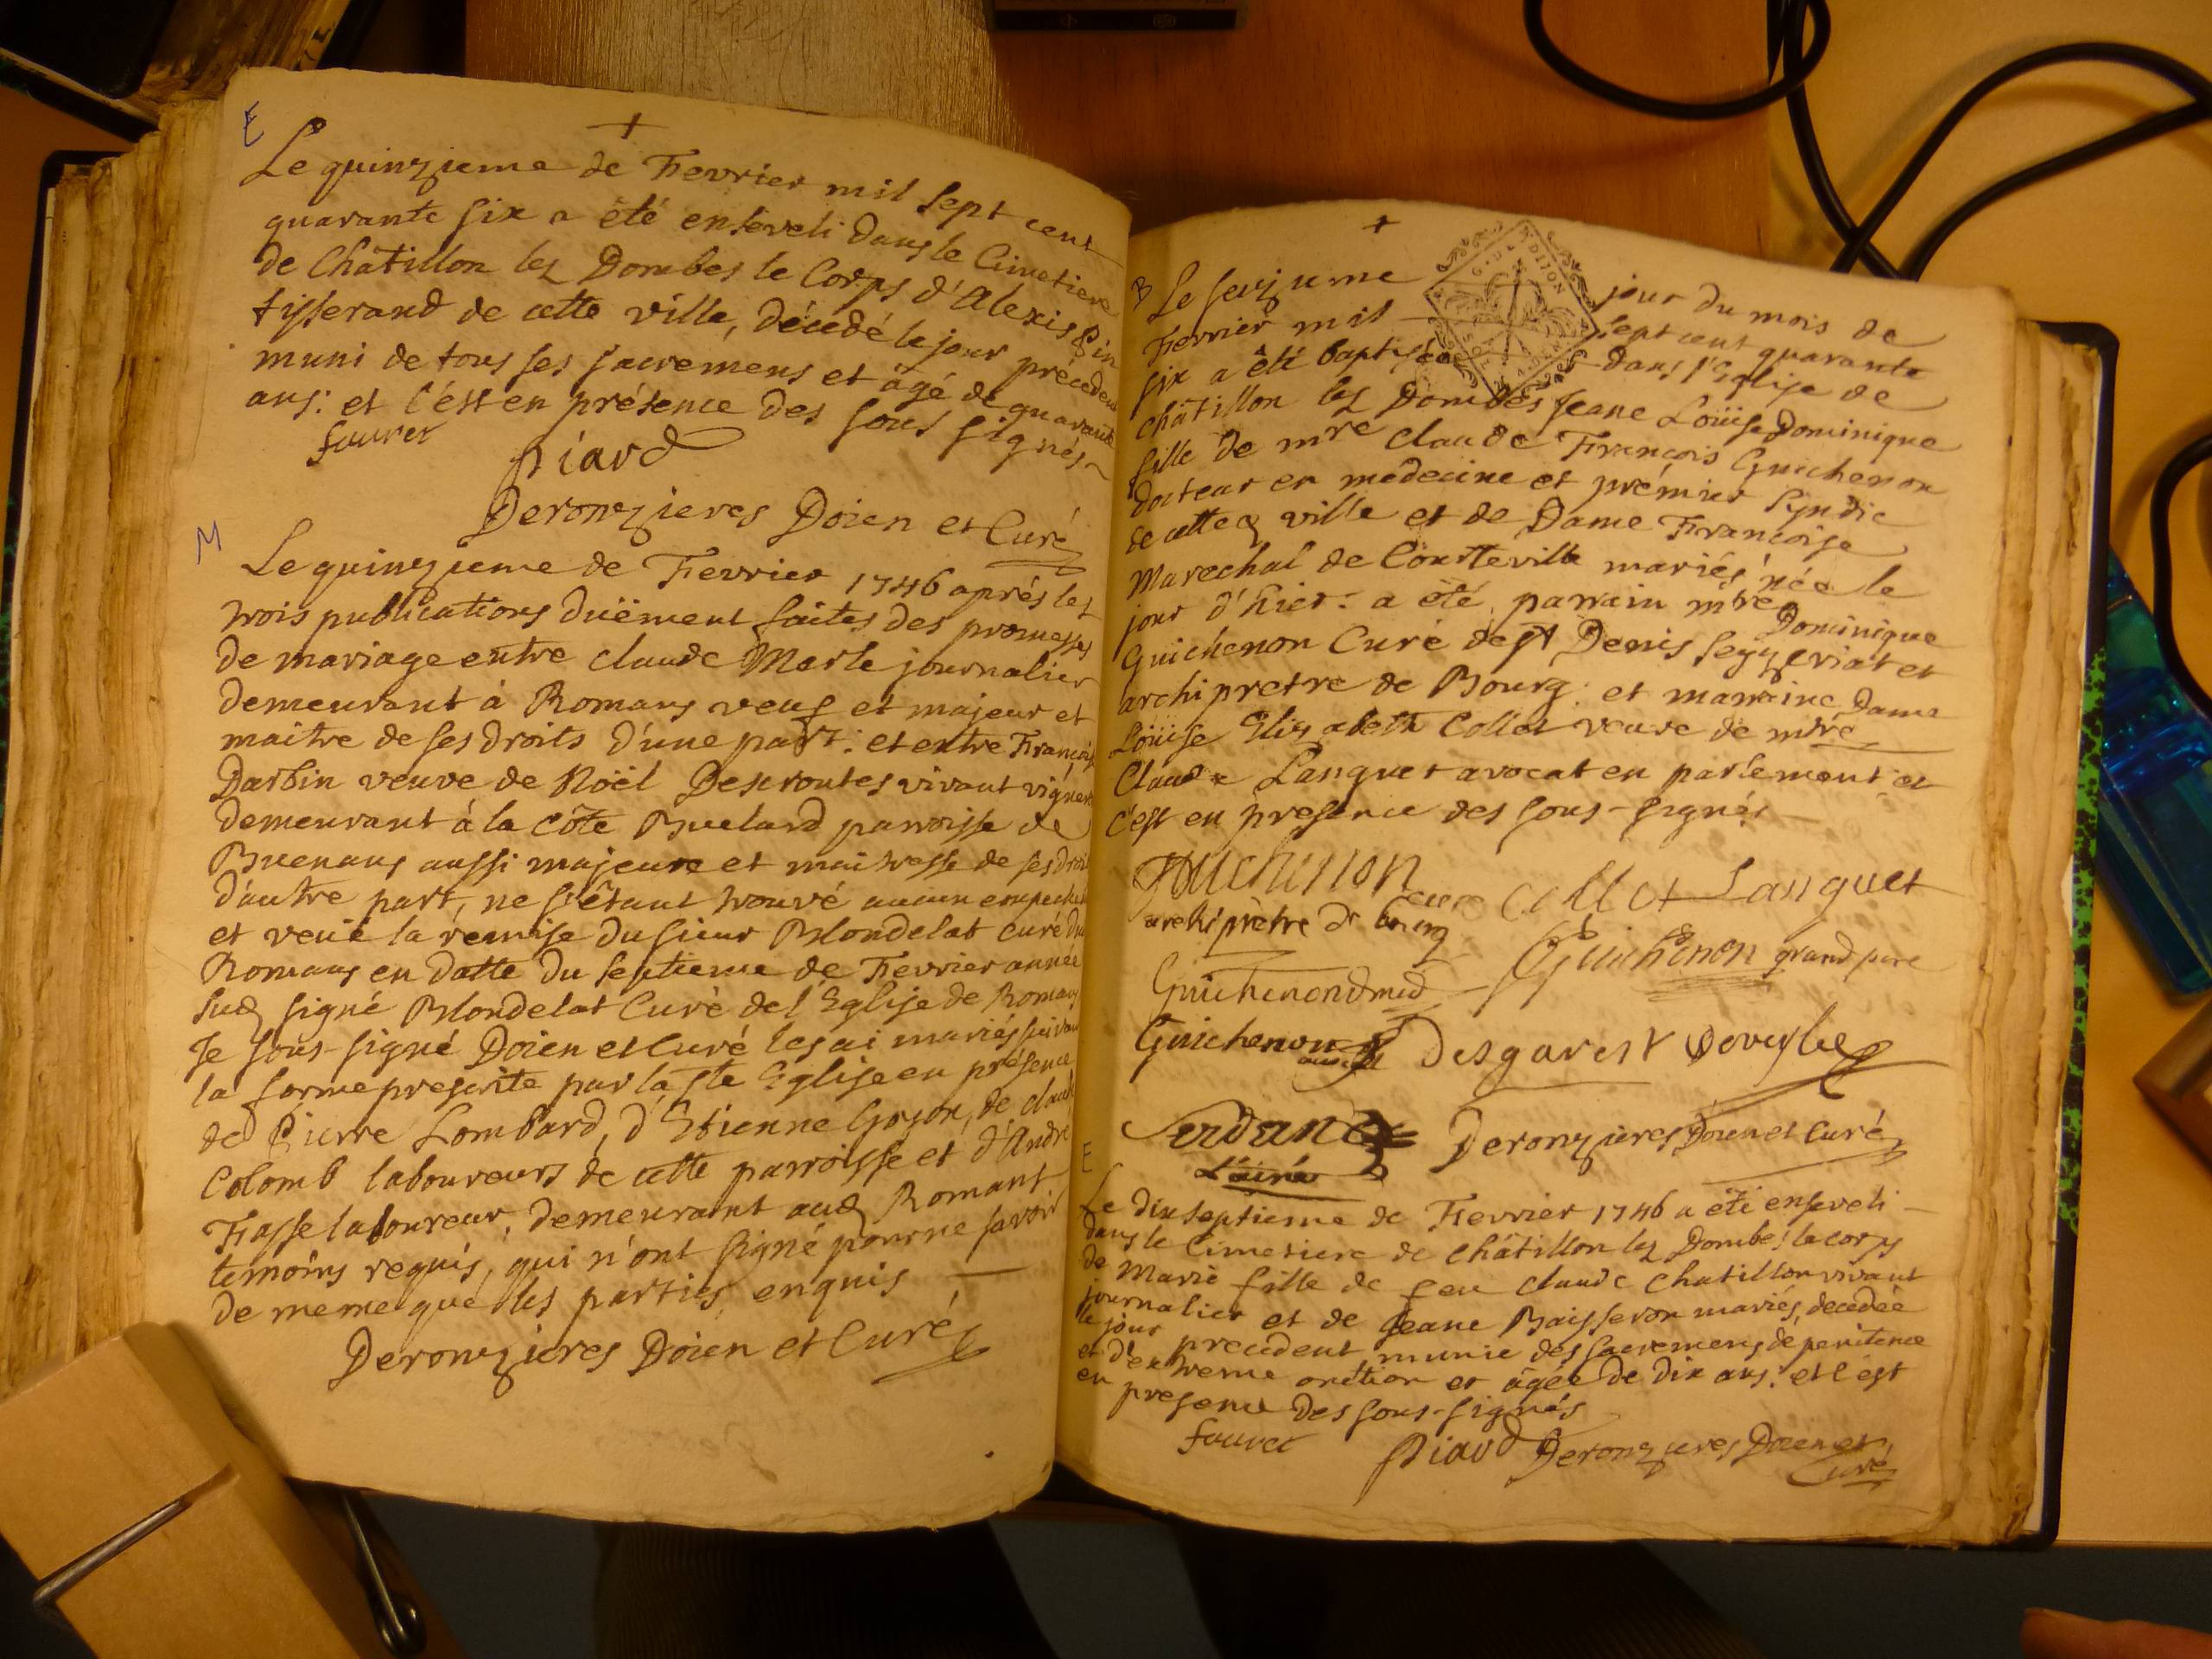 E
Le quinzieme de Fevrier mil sept cent
quarante six a été enseveli dans le Cimetiere
de Châtillon lez Dombes le Corps d'Alexis
tisserand de cette ville, décédé le jour précedent
muni de tous ses sacremens et âgé de quarante
ans: et c'est en présence des sous signés
fauret
Piard
Deronzieres Doien et Curé
M
Le quinzieme de Fevrier 1746 aprés les
trois publications duëment faites des promesses
de mariage entre claude Merle journalier
demeurant à Romans veuf et majeur et
maitre de ses droits d'une part: et entre Françoise
Darbin veuve de Noël Desroutes vivant vigneron
demeurant à la Côte Buelard parroisse de
Buenans aussi majeure et maitresse de ses droits
d'autre part, ne s'étant trouvé aucun empechement
et veüe la remise du sieur Blondelat curé du
Romans en datte du septieme de Fevrier année
susd signé Blondelat Curé de l'Eglise de Romans
Je sous-signé Doien et Curé les ai mariés suivant
la forme prescrite par la Ste Eglise en présence
de Pierre Lombard, d'Etienne Goyon, de claude
Colomb laboureurs de cette parroisse et d'André
Fasse laboureur, demeurant aud Romant
temoins requis, qui n'ont signé pour ne savoir
de meme que les parties enquis
Deronzieres Doien et Curé
B
Le seizieme jour du mois de
Fevrier mil sept cent quarante
six a êté baptisée dans l'Eglise de
G. D. DIJON
châtillon lez Dombes Jeane Loüise Dominique
fille de mre claude François Guichenon
docteur en médecine et prémier syndic
de cette ville et de Dame Françoise
Marechal de Courteville mariés née le
jour d'hier: a été parrain mtre Dominique
Guichenon Curé de st Denis Seyzeriat et
archipretre de Bourg: et marraine Dame
Loüise Elizabeth Collet veuve de mtre
Claude Languet avocat en parlement, et
c'est en presence des sous-signés
Guichenon curé Collet Languet
archiprêtre de bourg
Guichenon grand pere
Guichenon dmed
Guichenon Desgarest
L'ainé
Deronzieres Doien et Curé
E
Le dixseptieme de Fevrier 1746 a êté enseveli
dans le Cimetiere de châtillon lez Dombes le corps
de Marie fille de feu claude Chatillon vivant
journalier et de Jeane Baisseron mariés, decedée
le jour precedent munie des sacremens de penitence
et d'extreme onction et âgée de dix ans: et c'est
en presence des sous-signés
fauret Piard Deronzieres Doien et
Curé